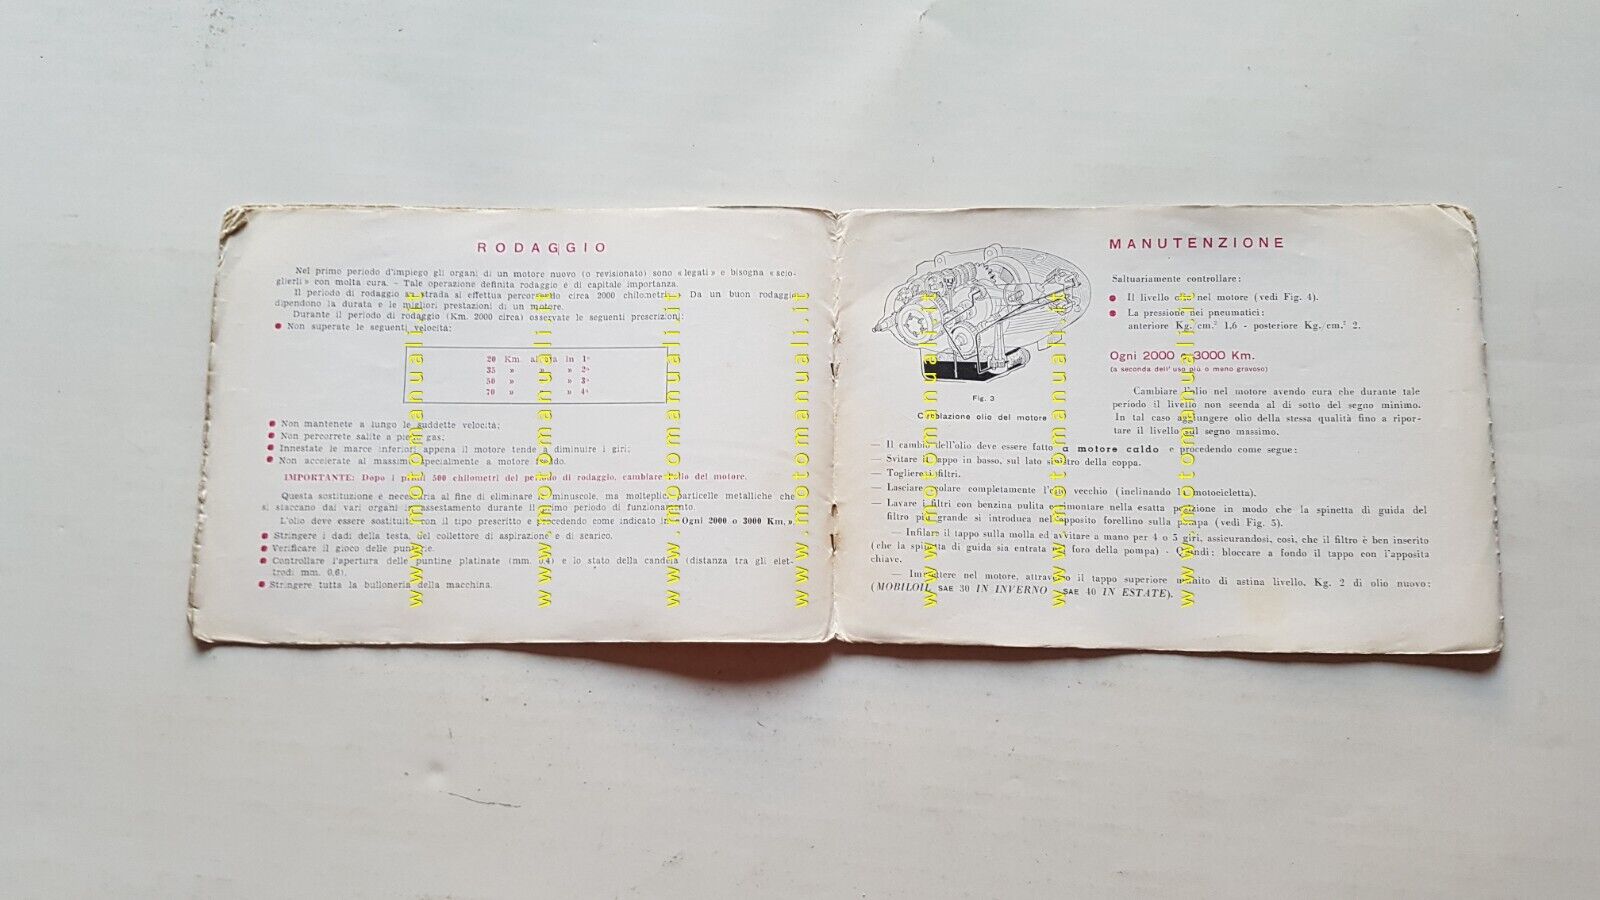 RODAGGIO
Nel primo periodo d'impiego gli organi di un motore nuovo (o revisionato) sono «legati» e bisogna «scio-
glierli» con molta cura. - Tale operazione definita rodaggio è di capitale importanza.
Il periodo di rodaggio su strada si effettua percorrendo circa 2000 chilometri. Da un buon rodaggio
dipendono la durata e le migliori prestazioni di un motore.
Durante il periodo di rodaggio (Km. 2000 circa) osservate le seguenti prescrizioni:
● Non superate le seguenti velocità:
20 Km. all'ora in 1ª
35 » » » 2ª
50 » » » 3ª
70 » » » 4ª
● Non mantenete a lungo le suddette velocità;
● Non percorrete salite a pieno gas;
● Innestate le marce inferiori appena il motore tende a diminuire i giri;
● Non accelerate al massimo specialmente a motore freddo.
IMPORTANTE: Dopo i primi 500 chilometri del periodo di rodaggio, cambiare l'olio del motore.
Questa sostituzione è necessaria al fine di eliminare le minuscole, ma molteplici particelle metalliche che
si staccano dai vari organi in assestamento durante il primo periodo di funzionamento.
L'olio deve essere sostituito con il tipo prescritto e procedendo come indicato in «Ogni 2000 o 3000 Km.».
● Stringere i dadi della testa, del collettore di aspirazione e di scarico.
● Verificare il gioco delle punterie.
● Controllare l'apertura delle puntine platinate (mm. 0,4) e lo stato della candela (distanza tra gli elet-
trodi mm. 0,6).
● Stringere tutta la bulloneria della macchina.
MANUTENZIONE
Saltuariamente controllare:
● Il livello olio nel motore (vedi Fig. 4).
● La pressione dei pneumatici:
anteriore Kg./cm.² 1,6 - posteriore Kg./cm.² 2.
Ogni 2000 o 3000 Km.
(a seconda dell'uso più o meno gravoso)
Fig. 3
Circolazione olio del motore
Cambiare l'olio nel motore avendo cura che durante tale
periodo il livello non scenda al di sotto del segno minimo.
In tal caso aggiungere olio della stessa qualità fino a ripor-
tare il livello sul segno massimo.
— Il cambio dell'olio deve essere fatto a motore caldo e procedendo come segue:
— Svitare il tappo in basso, sul lato sinistro della coppa.
— Togliere i filtri.
— Lasciare scolare completamente l'olio vecchio (inclinando la motocicletta).
— Lavare i filtri con benzina pulita e rimontare nella esatta posizione in modo che la spinetta di guida del
filtro più grande si introduca nell'apposito forellino sulla pompa (vedi Fig. 5).
— Infilare il tappo sulla molla ed avvitare a mano per 4 o 5 giri, assicurandosi, così, che il filtro è ben inserito
(che la spinetta di guida sia entrata nel foro della pompa) - Quindi: bloccare a fondo il tappo con l'apposita
chiave.
— Immettere nel motore, attraverso il tappo superiore munito di astina livello, Kg. 2 di olio nuovo:
(MOBILOIL SAE 30 IN INVERNO - SAE 40 IN ESTATE).
www.motomanuali.it
www.motomanuali.it
www.motomanuali.it
www.motomanuali.it
www.motomanuali.it
www.motomanuali.it
www.motomanuali.it